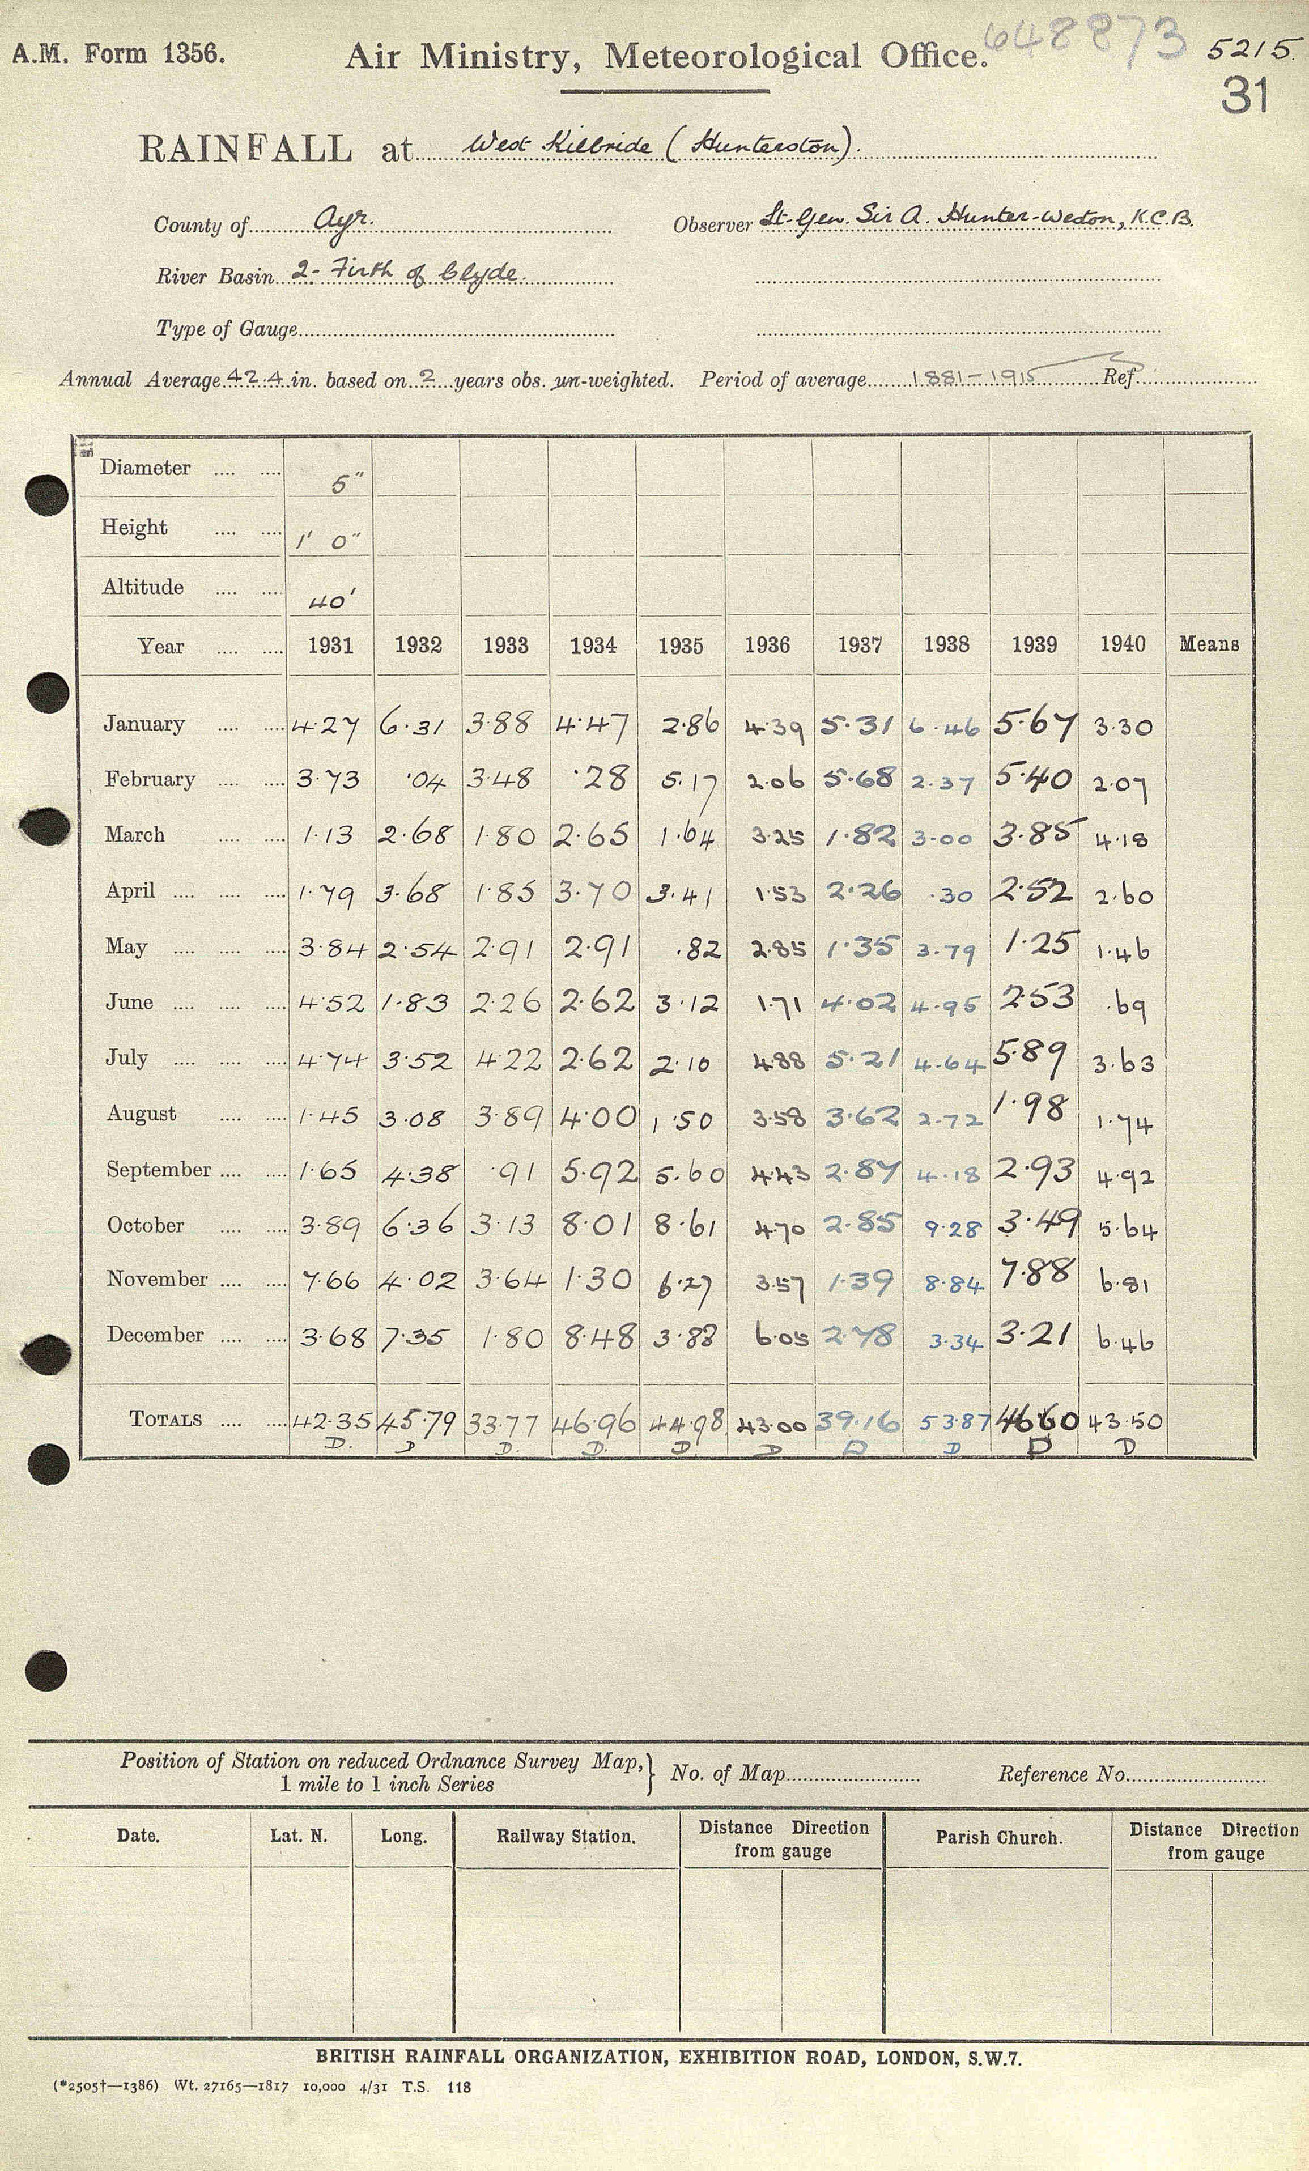 A.M. Form 1356.
Air Ministry, Meteorological Office.
648873
5215.
31
RAINFALL at West Kilbride (Hunterston).
County of Ayr.
Observer Lt-Gen. Sir A. Hunter-Weston, K.C.B.
River Basin 2- Firth of Clyde.
Type of Gauge
Annual Average 42.4 in. based on 2 years obs. un-weighted. Period of average 1881-1915 Ref.
Diameter 5"
Height 1' 0"
Altitude 40'
Year 1931 1932 1933 1934 1935 1936 1937 1938 1939 1940 Means
January 4.27 6.31 3.88 4.47 2.86 4.39 5.31 6.46 5.67 3.30
February 3.73 .04 3.48 .28 5.17 2.06 5.68 2.37 5.40 2.07
March 1.13 2.68 1.80 2.65 1.64 3.25 1.82 3.00 3.85 4.18
April 1.79 3.68 1.85 3.70 3.41 1.53 2.26 .30 2.52 2.60
May 3.84 2.54 2.91 2.91 .82 2.85 1.35 3.79 1.25 1.46
June 4.52 1.83 2.26 2.62 3.12 1.71 4.02 4.95 2.53 .69
July 4.74 3.52 4.22 2.62 2.10 4.88 5.21 4.64 5.89 3.63
August 1.45 3.08 3.89 4.00 1.50 3.58 3.62 2.72 1.98 1.74
September 1.65 4.38 .91 5.92 5.60 4.43 2.87 4.18 2.93 4.92
October 3.89 6.36 3.13 8.01 8.61 4.70 2.85 9.28 3.49 5.64
November 7.66 4.02 3.64 1.30 6.27 3.57 1.39 8.84 7.88 6.81
December 3.68 7.35 1.80 8.48 3.88 6.05 2.78 3.34 3.21 6.46
TOTALS 42.35 45.79 33.77 46.96 44.98 43.00 39.16 53.87 46.60 43.50
D. D D. D. D D D D D D
Position of Station on reduced Ordnance Survey Map,} No. of Map Reference No.
1 mile to 1 inch Series
Date. Lat. N. Long. Railway Station. Distance Direction from gauge Parish Church. Distance Direction from gauge
BRITISH RAINFALL ORGANIZATION, EXHIBITION ROAD, LONDON, S.W.7.
(*2505†—1386) Wt. 27165—1817 10,000 4/31 T.S. 118